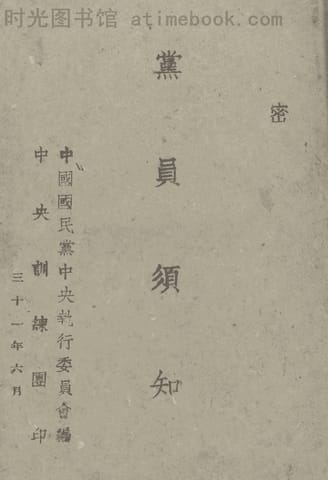 时光图书馆 atimebook.com
密
黨員須知
中國國民黨中央執行委員會編
中央訓練團印
三十一年六月